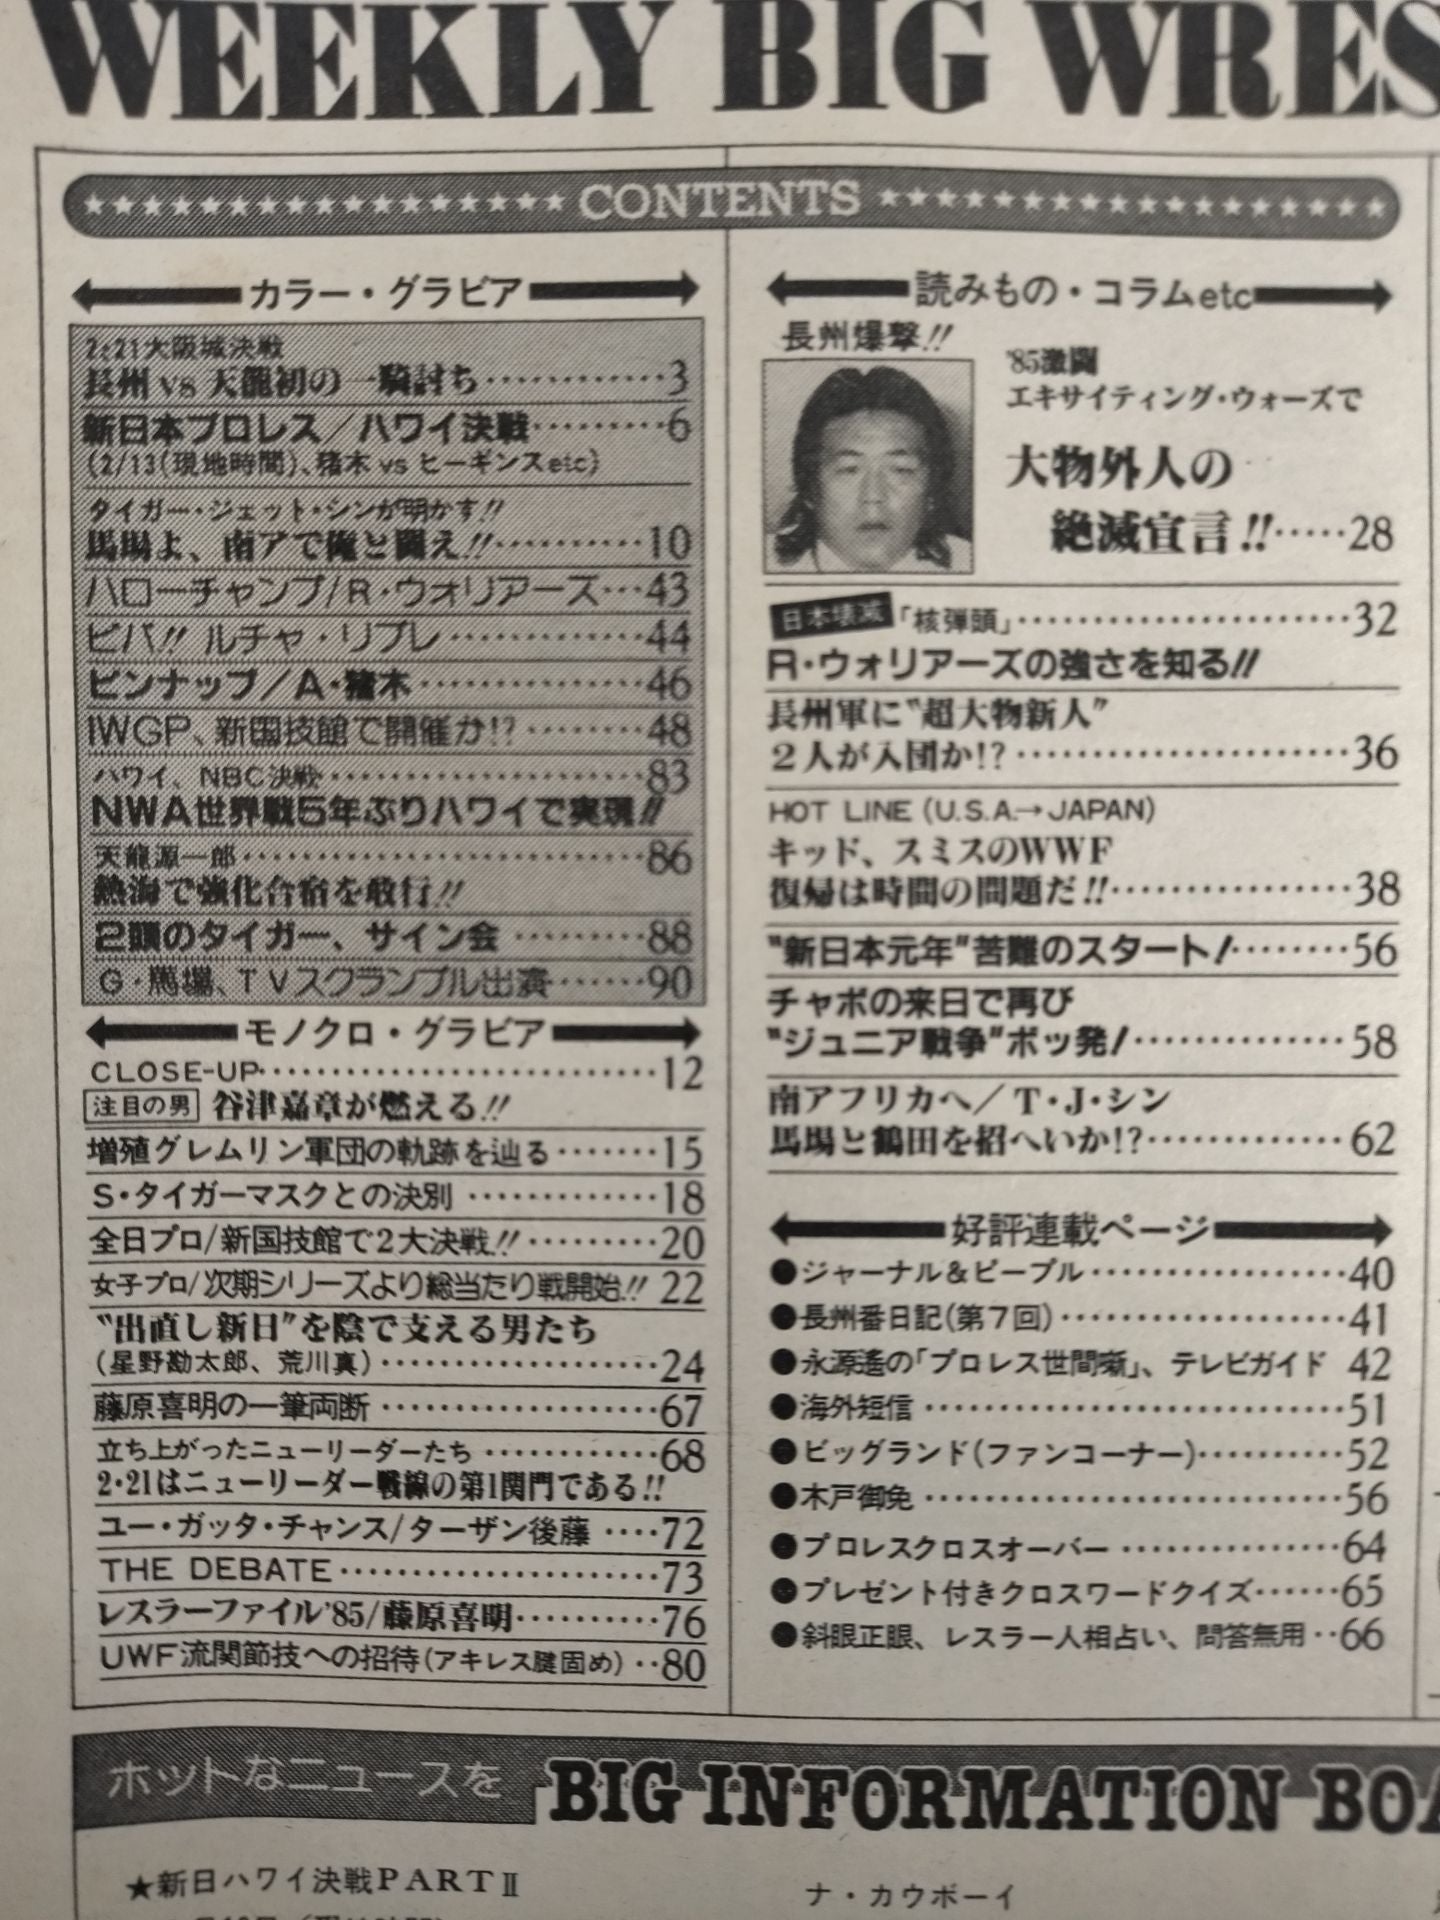 WEEKLY BIG WRES
CONTENTS
カラー・グラビア
2・21大阪城決戦
長州 vs 天龍初の一騎討ち…………3
新日本プロレス／ハワイ決戦………6
(2/13(現地時間)、猪木 vs ヒーギンスetc)
タイガー・ジェット・シンが明かす!!
馬場よ、南アで俺と闘え!!…………10
ハローチャンプ/R・ウォリアーズ…43
ビバ!! ルチャ・リブレ…………44
ピンナップ／A・猪木…………46
IWGP、新国技館で開催か!?………48
ハワイ、NBC決戦…………83
NWA世界戦5年ぶりハワイで実現!!
天龍源一郎…………86
熱海で強化合宿を敢行!!
2頭のタイガー、サイン会………88
G・馬場、TVスクランブル出演……90
モノクロ・グラビア
CLOSE-UP…………12
注目の男 谷津嘉章が燃える!!
増殖グレムリン軍団の軌跡を辿る……15
S・タイガーマスクとの決別…………18
全日プロ/新国技館で2大決戦!!………20
女子プロ/次期シリーズより総当たり戦開始!! 22
"出直し新日"を陰で支える男たち
(星野勘太郎、荒川真)…………24
藤原喜明の一筆両断…………67
立ち上がったニューリーダーたち…………68
2・21はニューリーダー戦線の第1関門である!!
ユー・ガッタ・チャンス/ターザン後藤 …72
THE DEBATE…………73
レスラーファイル'85/藤原喜明………76
UWF流関節技への招待(アキレス腱固め)‥80
読みもの・コラムetc
長州爆撃!!
'85激闘
エキサイティング・ウォーズで
大物外人の
絶滅宣言!!……28
日本壊滅「核弾頭」…………32
R・ウォリアーズの強さを知る!!
長州軍に"超大物新人"
2人が入団か!?…………36
HOT LINE (U.S.A.→JAPAN)
キッド、スミスのWWF
復帰は時間の問題だ!!…………38
"新日本元年"苦難のスタート!………56
チャボの来日で再び
"ジュニア戦争"ボッ発!…………58
南アフリカへ／T・J・シン
馬場と鶴田を招へいか!?…………62
好評連載ページ
●ジャーナル&ピープル…………40
●長州番日記(第7回)…………41
●永源遙の「プロレス世間噺」、テレビガイド 42
●海外短信…………51
●ビッグランド(ファンコーナー)………52
●木戸御免…………56
●プロレスクロスオーバー…………64
●プレゼント付きクロスワードクイズ……65
●斜眼正眼、レスラー人相占い、問答無用‥66
ホットなニュースを BIG INFORMATION BOA
★新日ハワイ決戦PARTⅡ
ナ・カウボーイ